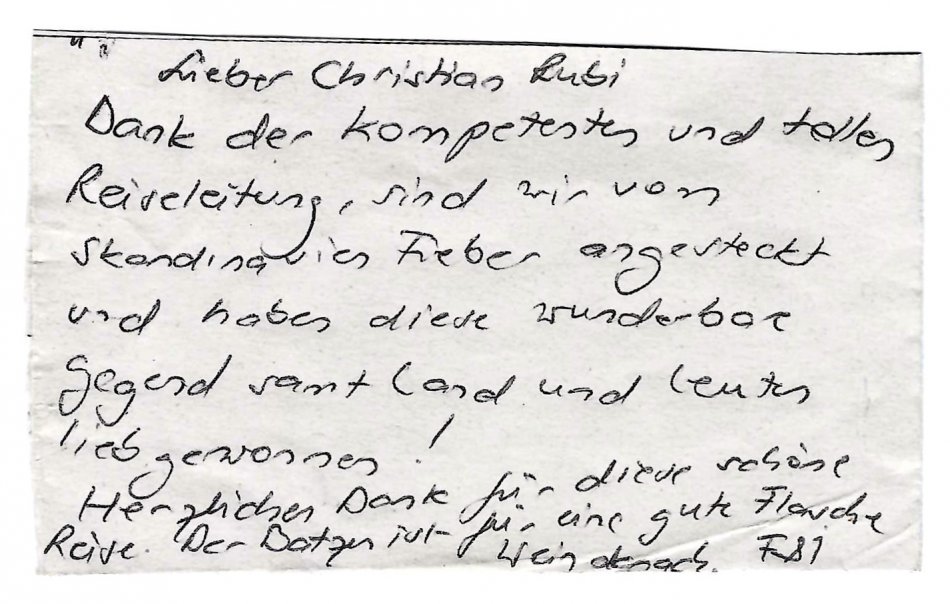 Lieber Christian Rubi
Dank der kompetenten und tollen
Reiseleitung, sind wir vom
Skandinavien Fieber angesteckt
und haben diese wunderbare
Gegend samt Land und Leuten
lieb gewonnen!
Herzlichen Dank für diese schöne
Reise. Der Batzen ist für eine gute Flasche
Wein danach.